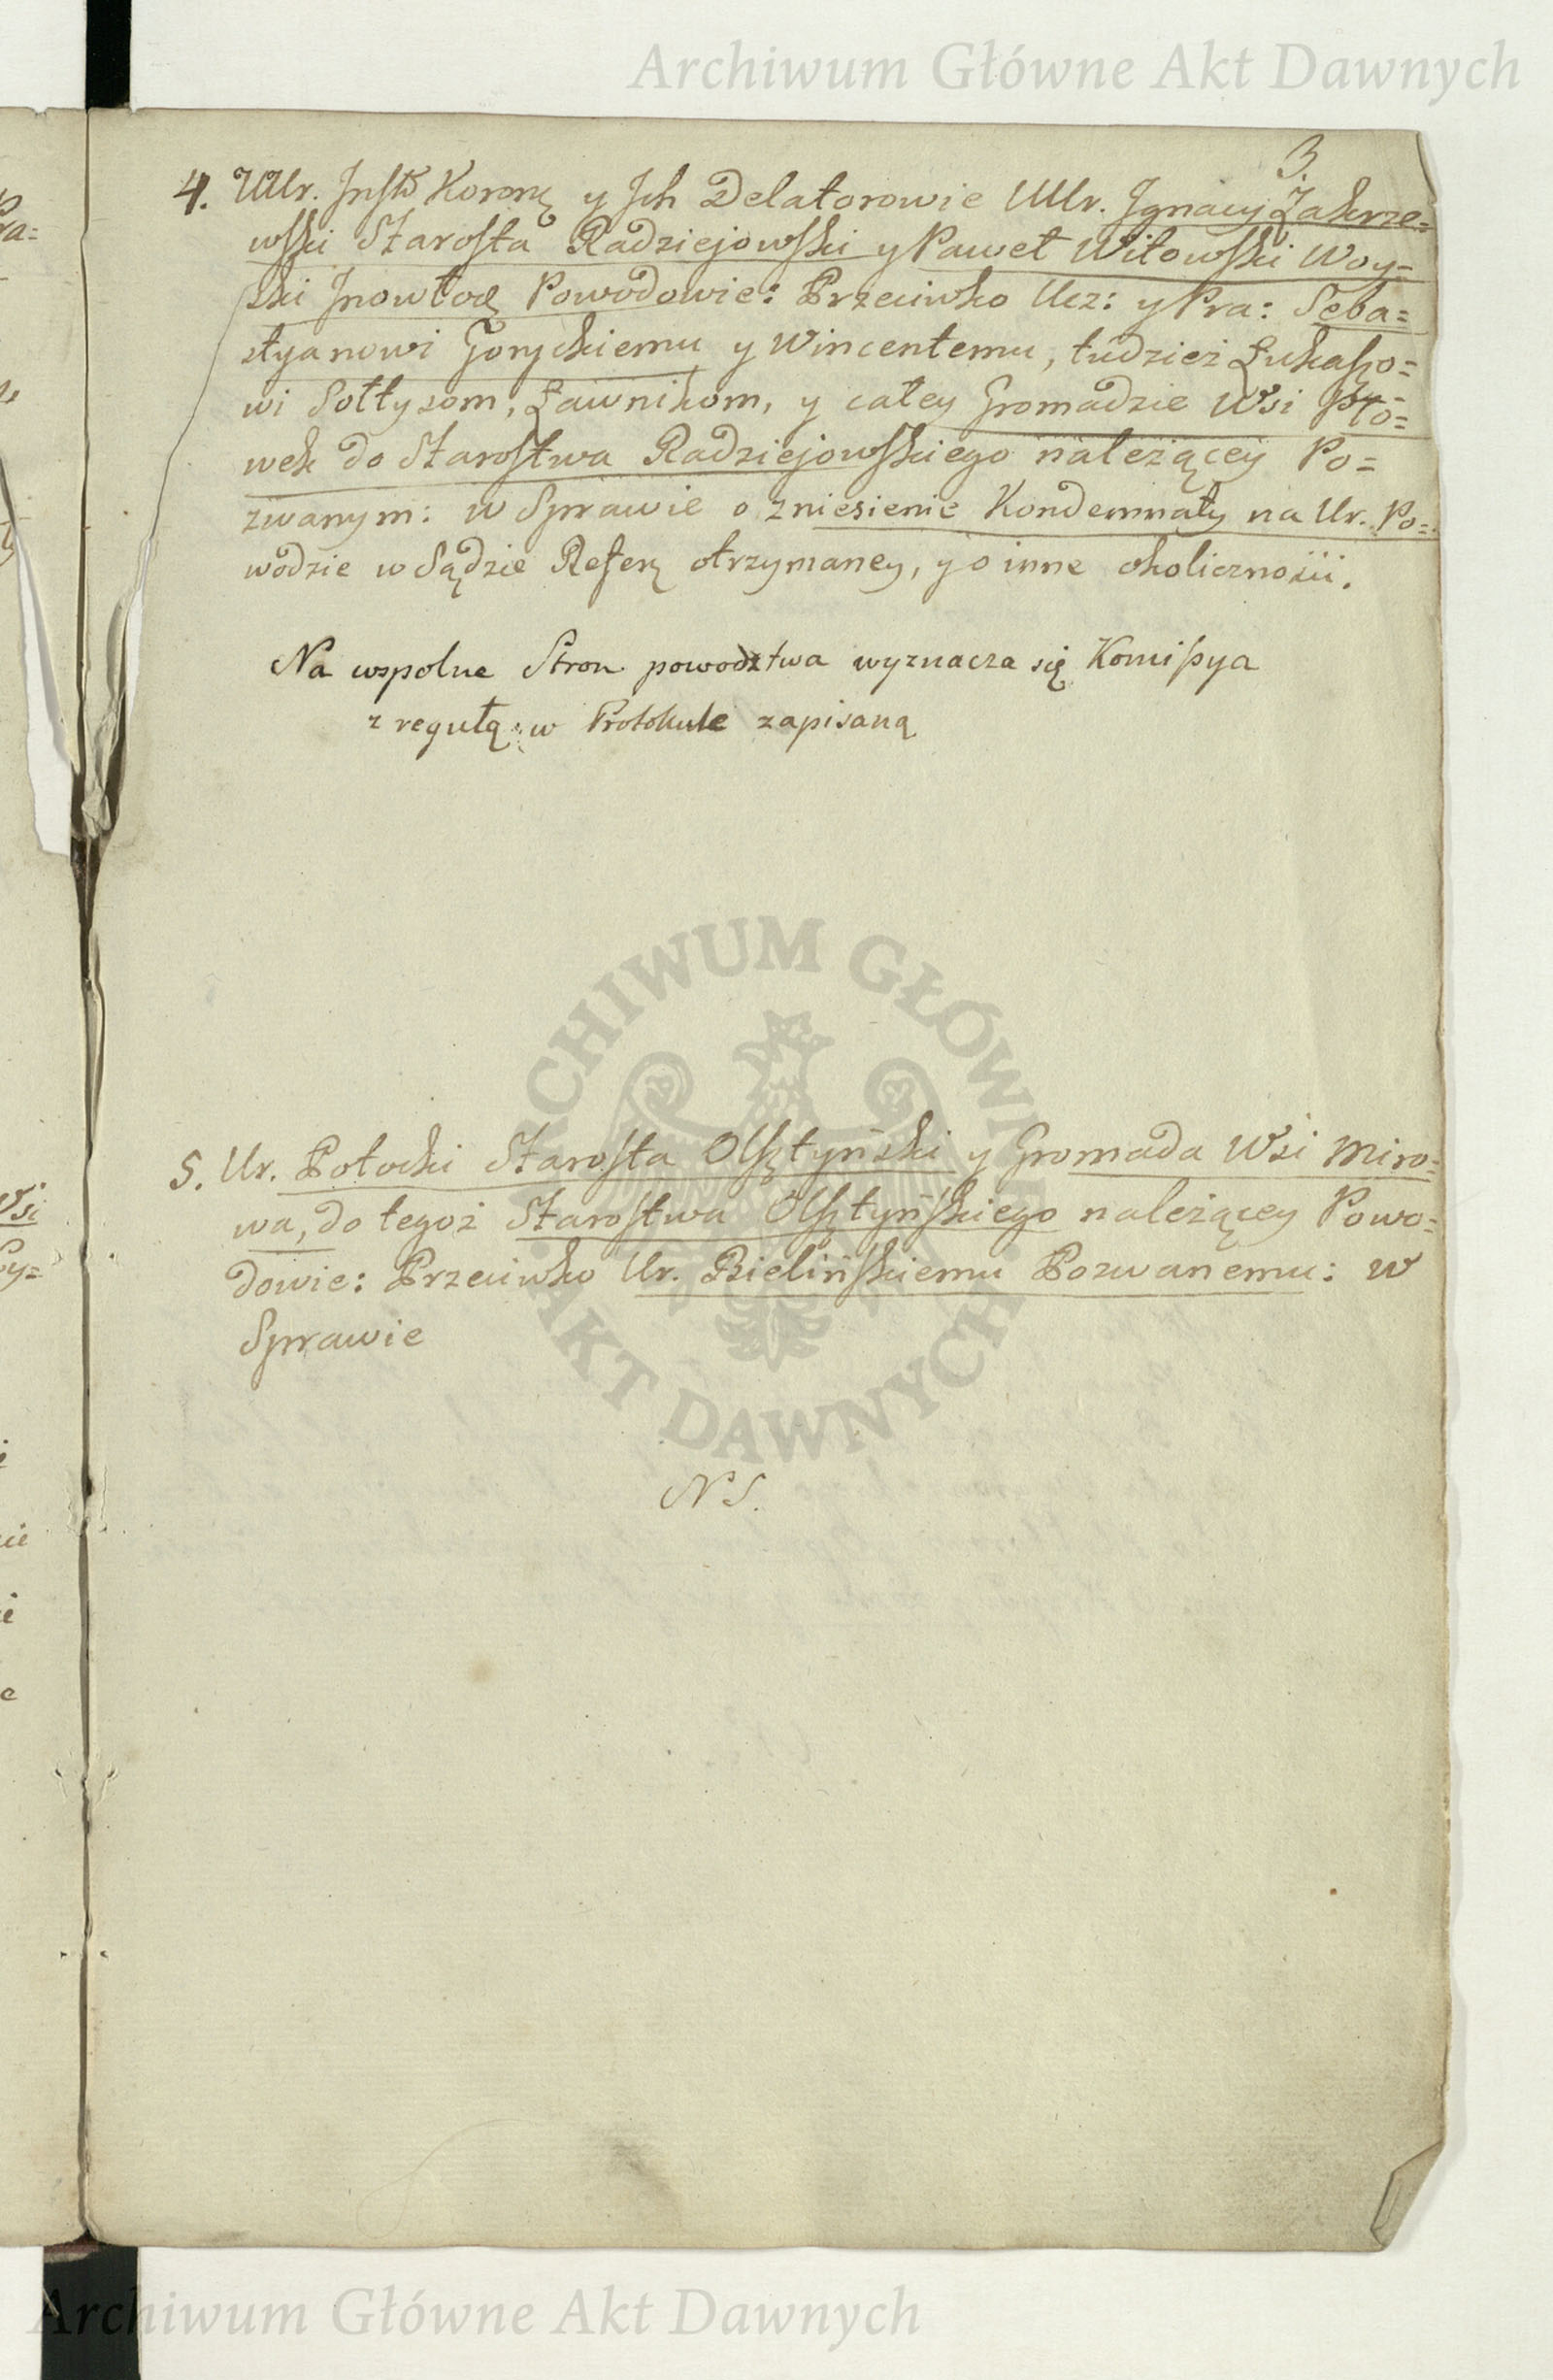 Archiwum Główne Akt Dawnych
3.
4. UUr. Insto Koronę y Ich Delatorowie UUr. Ignacy Zakrze=
wski Starosta Radziejowski y Paweł Witowski Woy=
ski Inowłoc Powodowie: Przeciwko Ucz: y Pra: Seba=
styanowi Goryckiemu y Wincentemu, tudzież Łukaszo=
wi Sołtysom, Ławnikom, y całey Gromadzie Wsi
wek do Starostwa Radziejowskiego należącey Po=
zwanym: w Sprawie o zniesienie Kondemnaty na Ur. Po=
wodzie w Sądzie Referą otrzymaney, y o inne okoliczności.
Na wspolne Stron powodztwa wyznacza się Komissya
z regułą w Protokule zapisaną
ARCHIWUM GŁÓWNE
AKT DAWNYCH
5. Ur. Potocki Starosta Olsztyński y Gromada Wsi Miro=
wa, do tegoż Starostwa Olsztyńskiego należącey Powo=
dowie: Przeciwko Ur. Bielińskiemu Pozwanemu: w
Sprawie
NS.
Archiwum Główne Akt Dawnych